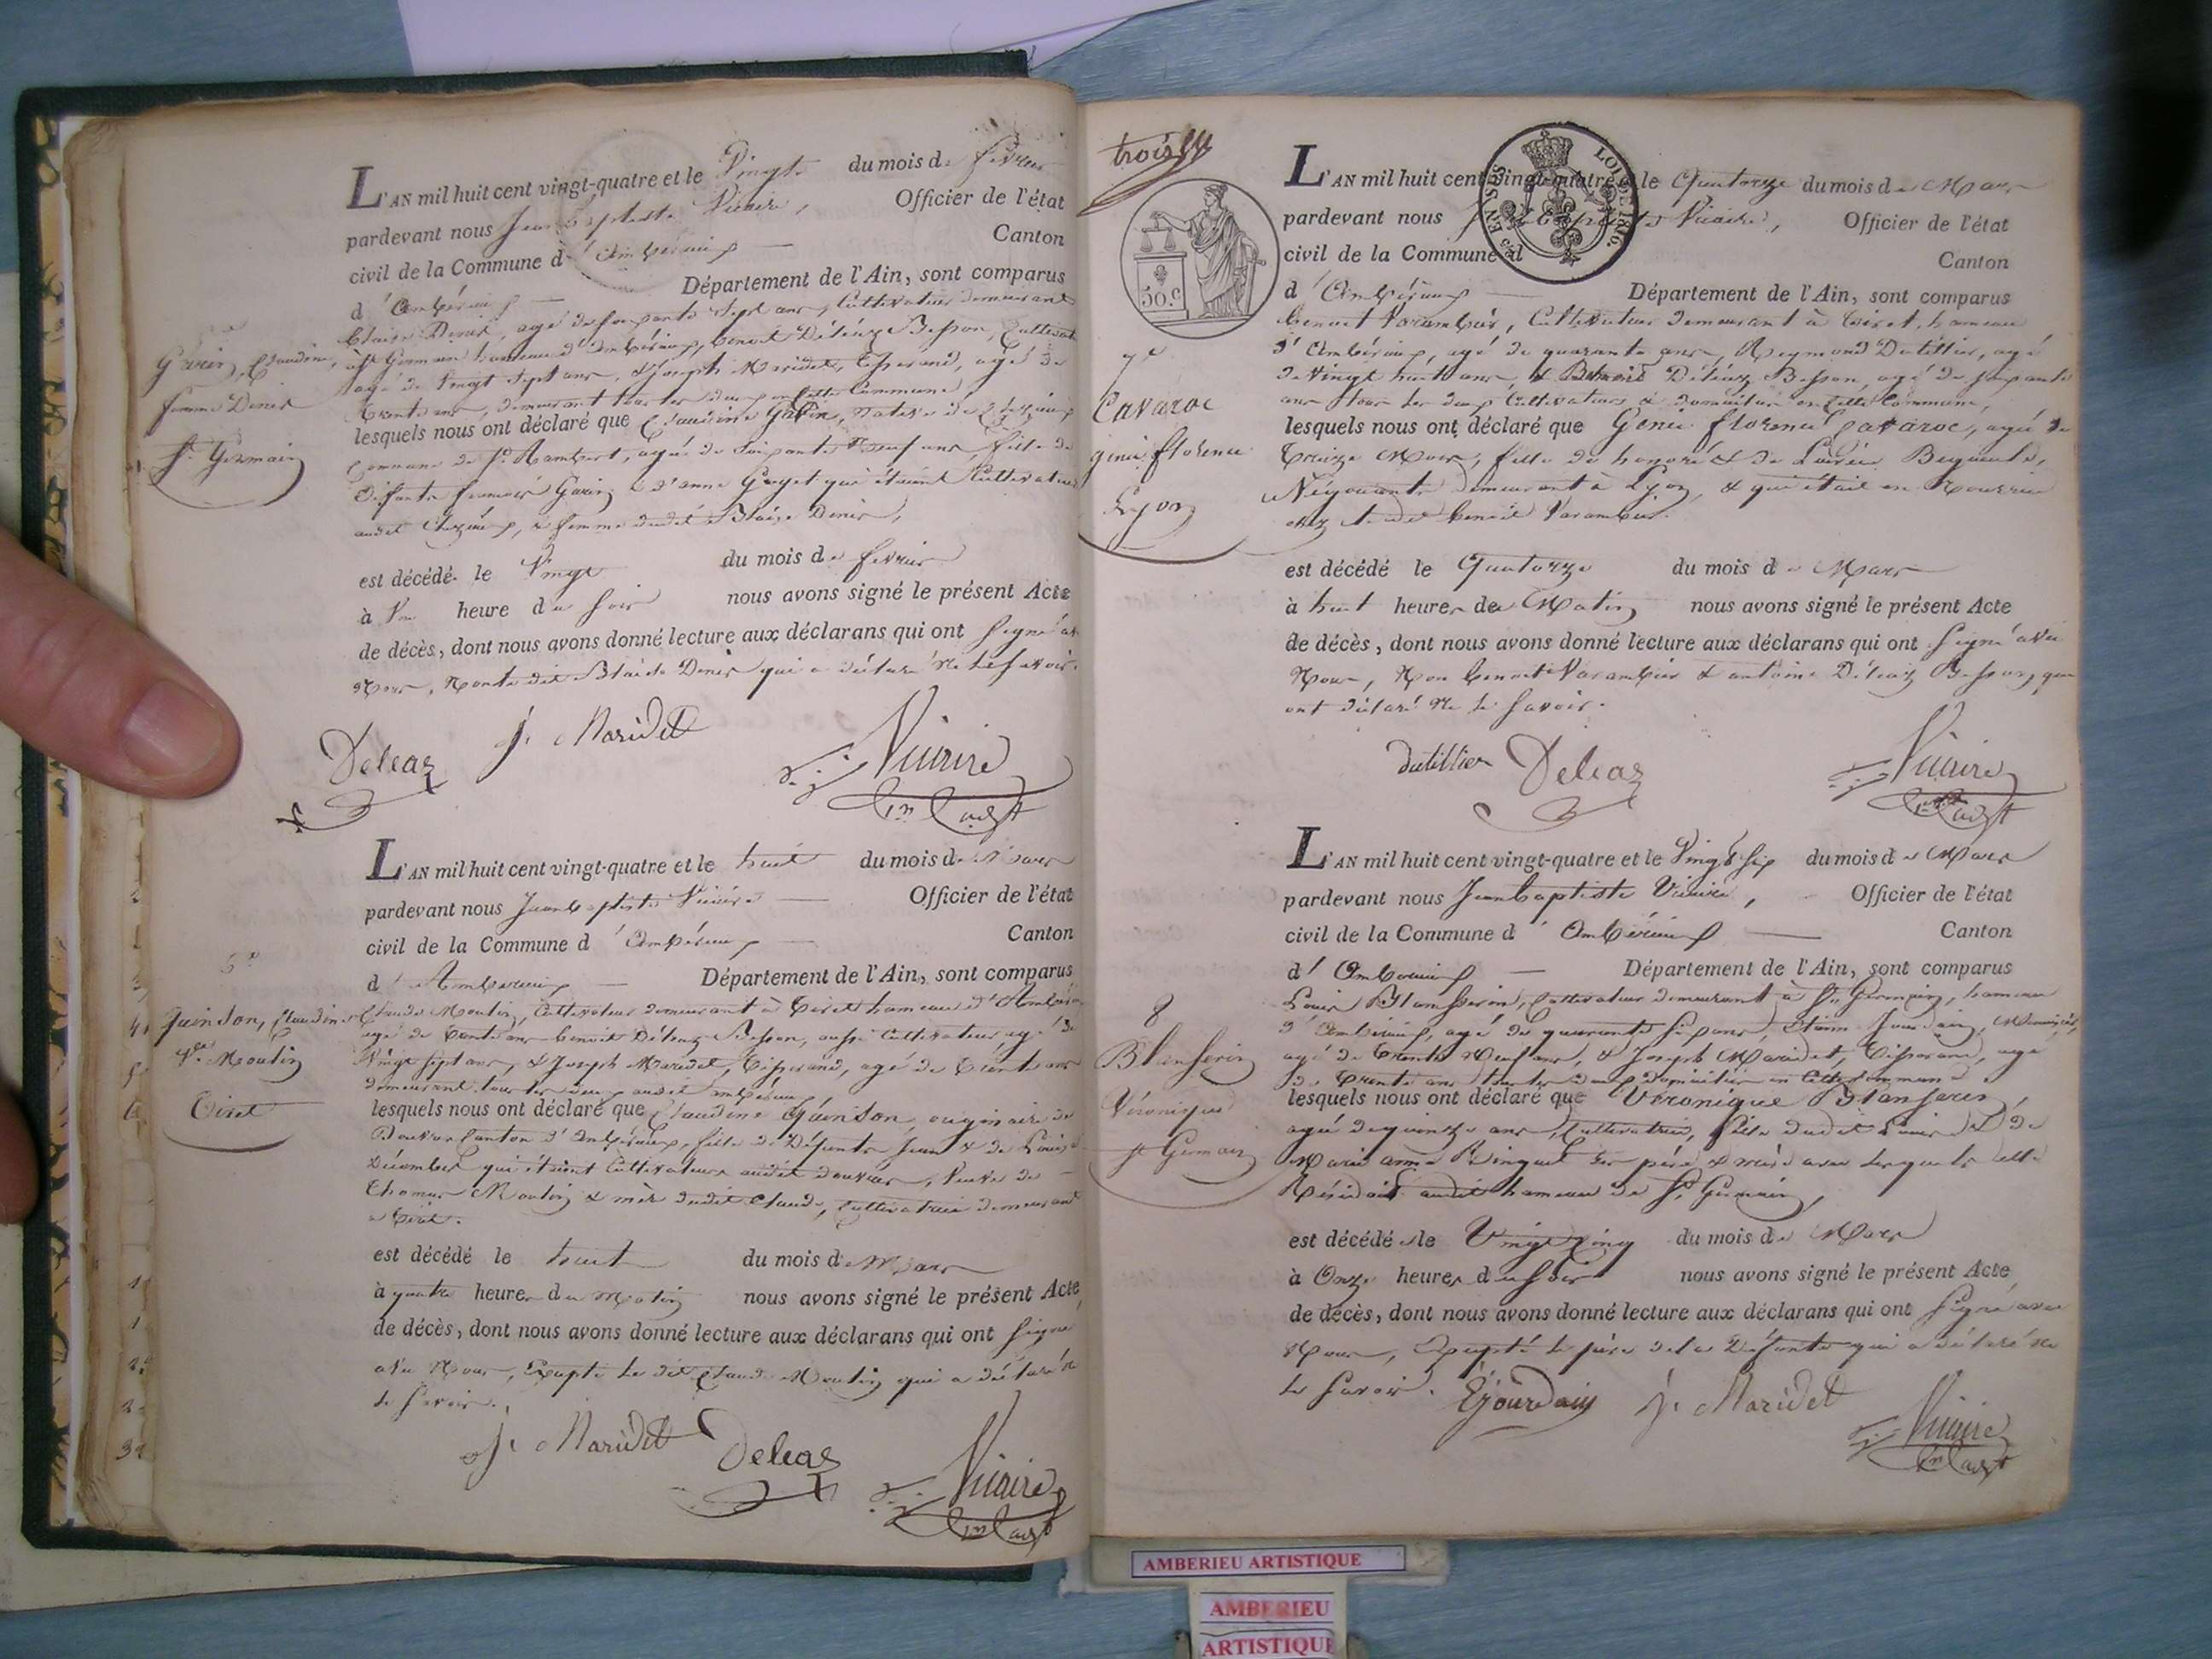 L'AN mil huit cent vingt-quatre et le Vingt du mois de fevrier
pardevant nous Jean Baptiste Vicaire, Officier de l'état
civil de la Commune d'Ambérieux Canton
d'Ambérieux Département de l'Ain, sont comparus
Blaise Denis, agé de soixante sept ans, Cultivateur demeurant
à St Germain hameau d'Ambérieux, benoit Déléaz Besson, Cultivat
agé de Vingt Sept ans, & Joseph Maridet, Tisserand, agé de
trente ans, demeurant tous les deux en cette Commune,
Garin, Claudine,
femme Denis
St Germain
lesquels nous ont déclaré que Claudine Garin, native de
Commune de St Rambert, agée de Soixante Neuf ans, fille de
Défunts Garin & d'anne Goyet qui étaient Cultivateurs
audit & femme dudit Blaise Denis,
est décédé le Vingt du mois de fevrier
à Une heure du Soir nous avons signé le présent Acte
de décès, dont nous avons donné lecture aux déclarans qui ont Signé av
Nous, Non le dit Blaise Denis qui a déclaré Ne le Savoir.
Deleaz J. Maridet Vicaire
L'AN mil huit cent vingt-quatre et le huit du mois de Mars
pardevant nous Jean baptiste Vicaire Officier de l'état
civil de la Commune d'Ambérieux Canton
d'Ambérieux Département de l'Ain, sont comparus
Guinson, Claudine
Ve Moutin
Tiret
Claude Moutin, Cultivateur demeurant à Tiret hameau d'Ambérieu
agé de trente ans benoit Déléaz Besson, aussi Cultivateur, agé de
Vingt sept ans, & Joseph Maridet, Tisserand, agé de trente ans
demeurant tous les deux audit ambérieux
lesquels nous ont déclaré que Claudine Guinson, originaire de
Douvres Canton d'Ambérieux, fille de Défunts Jean & de Louise
qui étaient Cultivateurs audit douvres, Veuve de
Thomas Moutin & mère dudit Claude, Cultivatrice demeurant
à Tiret.
est décédé le huit du mois de Mars
à quatre heures du Matin nous avons signé le présent Acte
de décès, dont nous avons donné lecture aux déclarans qui ont Signé
avec Nous, Excepté le dit Claude Moutin qui a déclaré ne
le Savoir.
J. Maridet Deleaz Vicaire
trois
50.c
L'AN mil huit cent vingt-quatre et le Quatorze du mois de Mars
pardevant nous Jean Baptiste Vicaire, Officier de l'état
civil de la Commune d Canton
d'Ambérieux Département de l'Ain, sont comparus
7e
Cavaroc
génie florence
Lyon
benoit Varambier, Cultivateur demeurant à Tiret, hameau
d'Ambérieux, agé de quarante ans, Reymond Dutillier, agé
de Vingt huit ans, & Benoit Déléaz Besson, agé de soixante
ans tous les deux Cultivateurs & domiciliés en cette Commune,
lesquels nous ont déclaré que Génie florence Cavaroc, agée de
treize Mois, fille de honoré & de
Négociants demeurant à Lyon, & qui était en Nourrice
chez le dit benoit Varambier.
est décédé le Quatorze du mois de Mars
à huit heures du Matin nous avons signé le présent Acte
de décès, dont nous avons donné lecture aux déclarans qui ont Signé avec
Nous, Non benoit Varambier & antoine Déléaz Besson, qui
ont déclaré Ne le Savoir.
dutillier Deleaz Vicaire
L'AN mil huit cent vingt-quatre et le Vingt Six du mois de Mars
pardevant nous Jean baptiste Vicaire, Officier de l'état
civil de la Commune d'Ambérieux Canton
d'Ambérieux Département de l'Ain, sont comparus
8
Blanserin
Véronique
St Germain
Louis Blanserin, Cultivateur demeurant à St Germain, hameau
d'Ambérieux, agé de quarante six ans, Etienne Jourdain, Menuisier,
agé de trente Neuf ans, & Joseph Maridet, Tisserand, agé
de trente ans tous les deux domiciliés en cette Commune
lesquels nous ont déclaré que Véronique Blanserin,
agée de quinze ans, Cultivatrice, fille dudit Louis & de
Marie anne Ringuet ses père & mère avec lesquels elle
Résidait audit hameau de St Germain,
est décédée le Vingt Cinq du mois de Mars
à Onze heures du Soir nous avons signé le présent Acte
de décès, dont nous avons donné lecture aux déclarans qui ont Signé avec
Nous, Excepté le père de la Défunte qui a déclaré ne
le Savoir.
E Jourdain J. Maridet Vicaire
AMBERIEU ARTISTIQUE
AMBERIEU
ARTISTIQUE